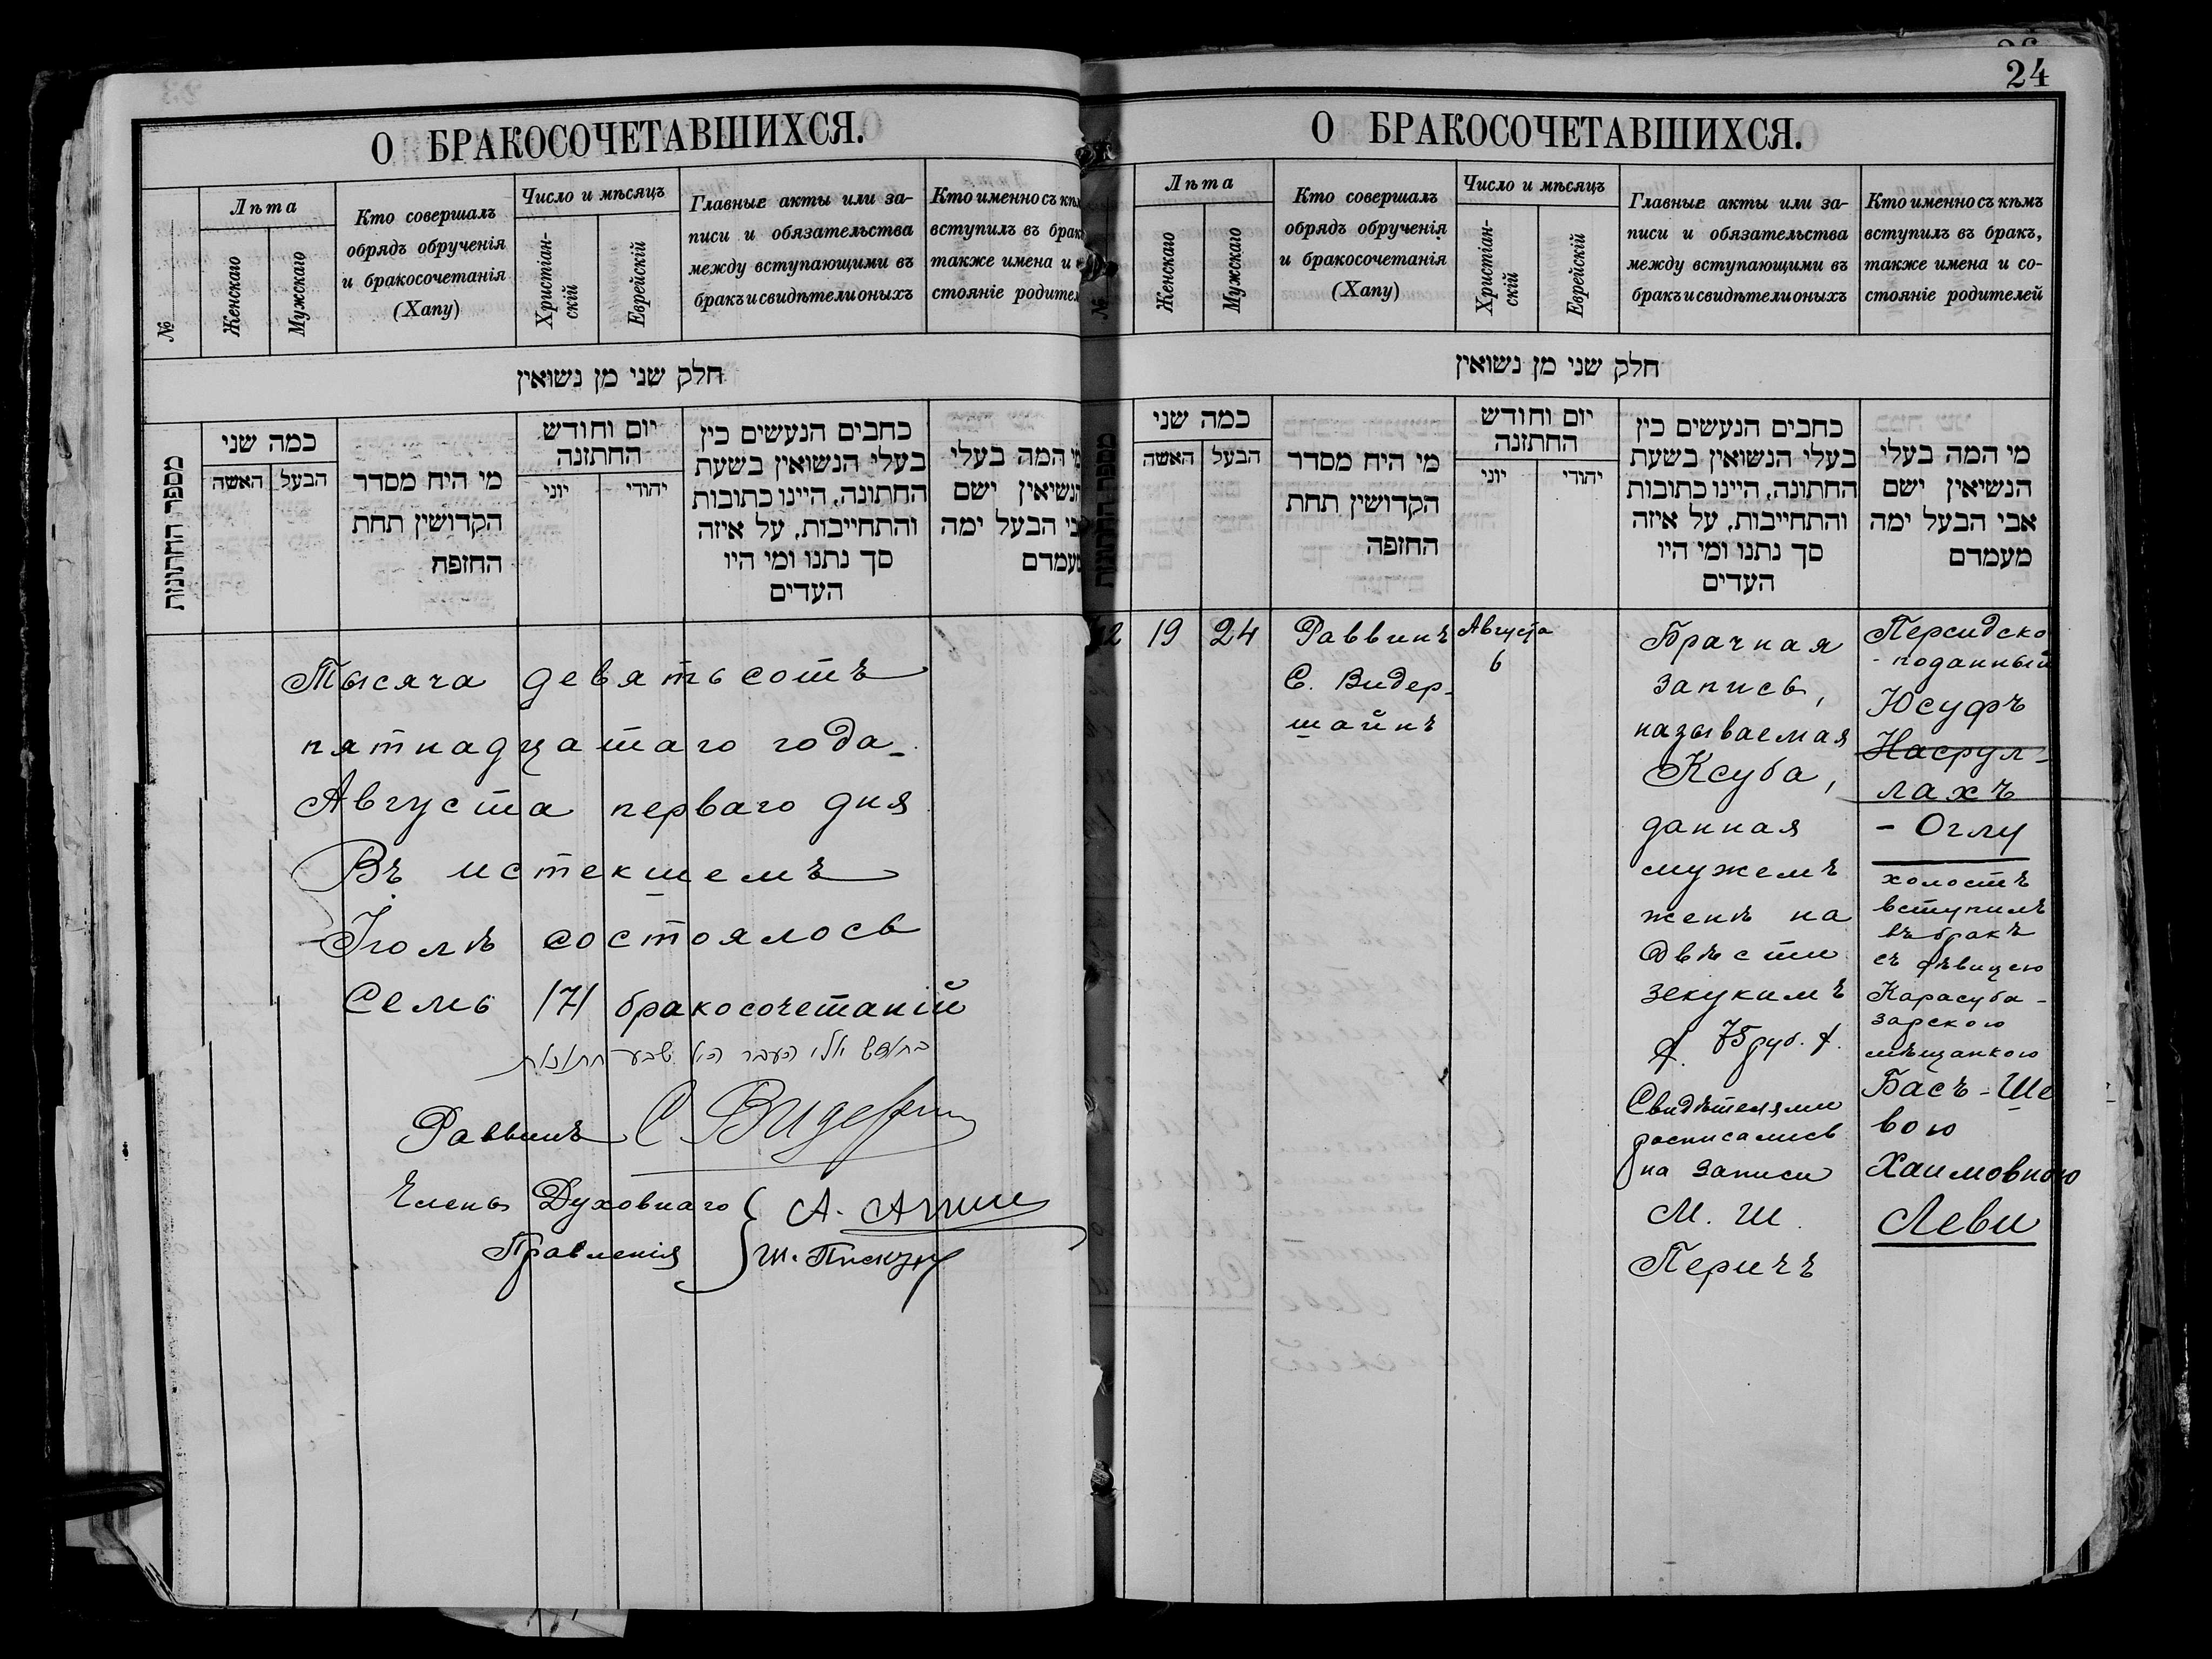 24
О БРАКОСОЧЕТАВШИХСЯ.
№
Лѣта
Женскаго
Мужскаго
Кто совершалъ
обрядъ обрученія
и бракосочетанія
(Хапу)
Число и мѣсяцъ
Христіан-
скій
Еврейскій
Главные акты или за-
писи и обязательства
между вступающими въ
бракъ и свидѣтели оныхъ
Кто именно съ кѣм
вступилъ въ брак
также имена и
стояніе родител
חלק שני מן נשואין
מספר החתונות
כמה שני
האשה
הבעל
מי היח מסדר
הקדושין תחת
החזפח
יום וחודש
החתזנה
יוני
יהודי
כחבים הנעשים כין
בעלי הנשואין בשעת
החתונה, היינו כתובות
והתחייבות, על איזה
סך נתנו ומי היו
העדים
המה בעלי
הנשיאין ישם
בי הבעל ימה
מעמדם
Тысяча девятьсотъ
пятнадцатаго года
Августа перваго дня
Въ истекшемъ
Іюлѣ состоялось
Семь /7/ бракосочетаній
בחודש יולי העבר היו שבע חתונות
Раввинъ С Видер
Члены Духовнаго
Правленія
О БРАКОСОЧЕТАВШИХСЯ.
№
Лѣта
Женскаго
Мужскаго
Кто совершалъ
обрядъ обрученія
и бракосочетанія
(Хапу)
Число и мѣсяцъ
Христіан-
скій
Еврейскій
Главные акты или за-
писи и обязательства
между вступающими въ
бракъ и свидѣтели оныхъ
Кто именно съ кѣмъ
вступилъ въ бракъ,
также имена и со-
стояніе родителей
חלק שני מן נשואין
מספר החתונות
כמה שני
האשה
הבעל
מי היח מסדר
הקדושין תחת
החזפה
יום וחודש
החתזנה
יוני
יהודי
כחבים הנעשים כין
בעלי הנשואין בשעת
החתונה, היינו כתובות
והתחייבות, על איזה
סך נתנו ומי היו
העדים
מי המה בעלי
הנשיאין ישם
אבי הבעל ימה
מעמדם
2
19
24
Раввинъ
С. Видер-
шайнъ
Августа
6
Брачная
запись,
называемая
Ксуба,
данная
мужемъ
женѣ на
Двѣсти
зекукимъ
75 руб.
Свидѣтелями
росписались
на записи
М. Ш.
Перичъ
Персидско
-поданный
Юсуфъ
Насрул-
лахъ
- Оглу
холостъ
вступилъ
въ бракъ
съ дѣвицею
Карасуба-
зарскою
мѣщанкою
Басъ-Ше
вою
Хаимовною
Леви